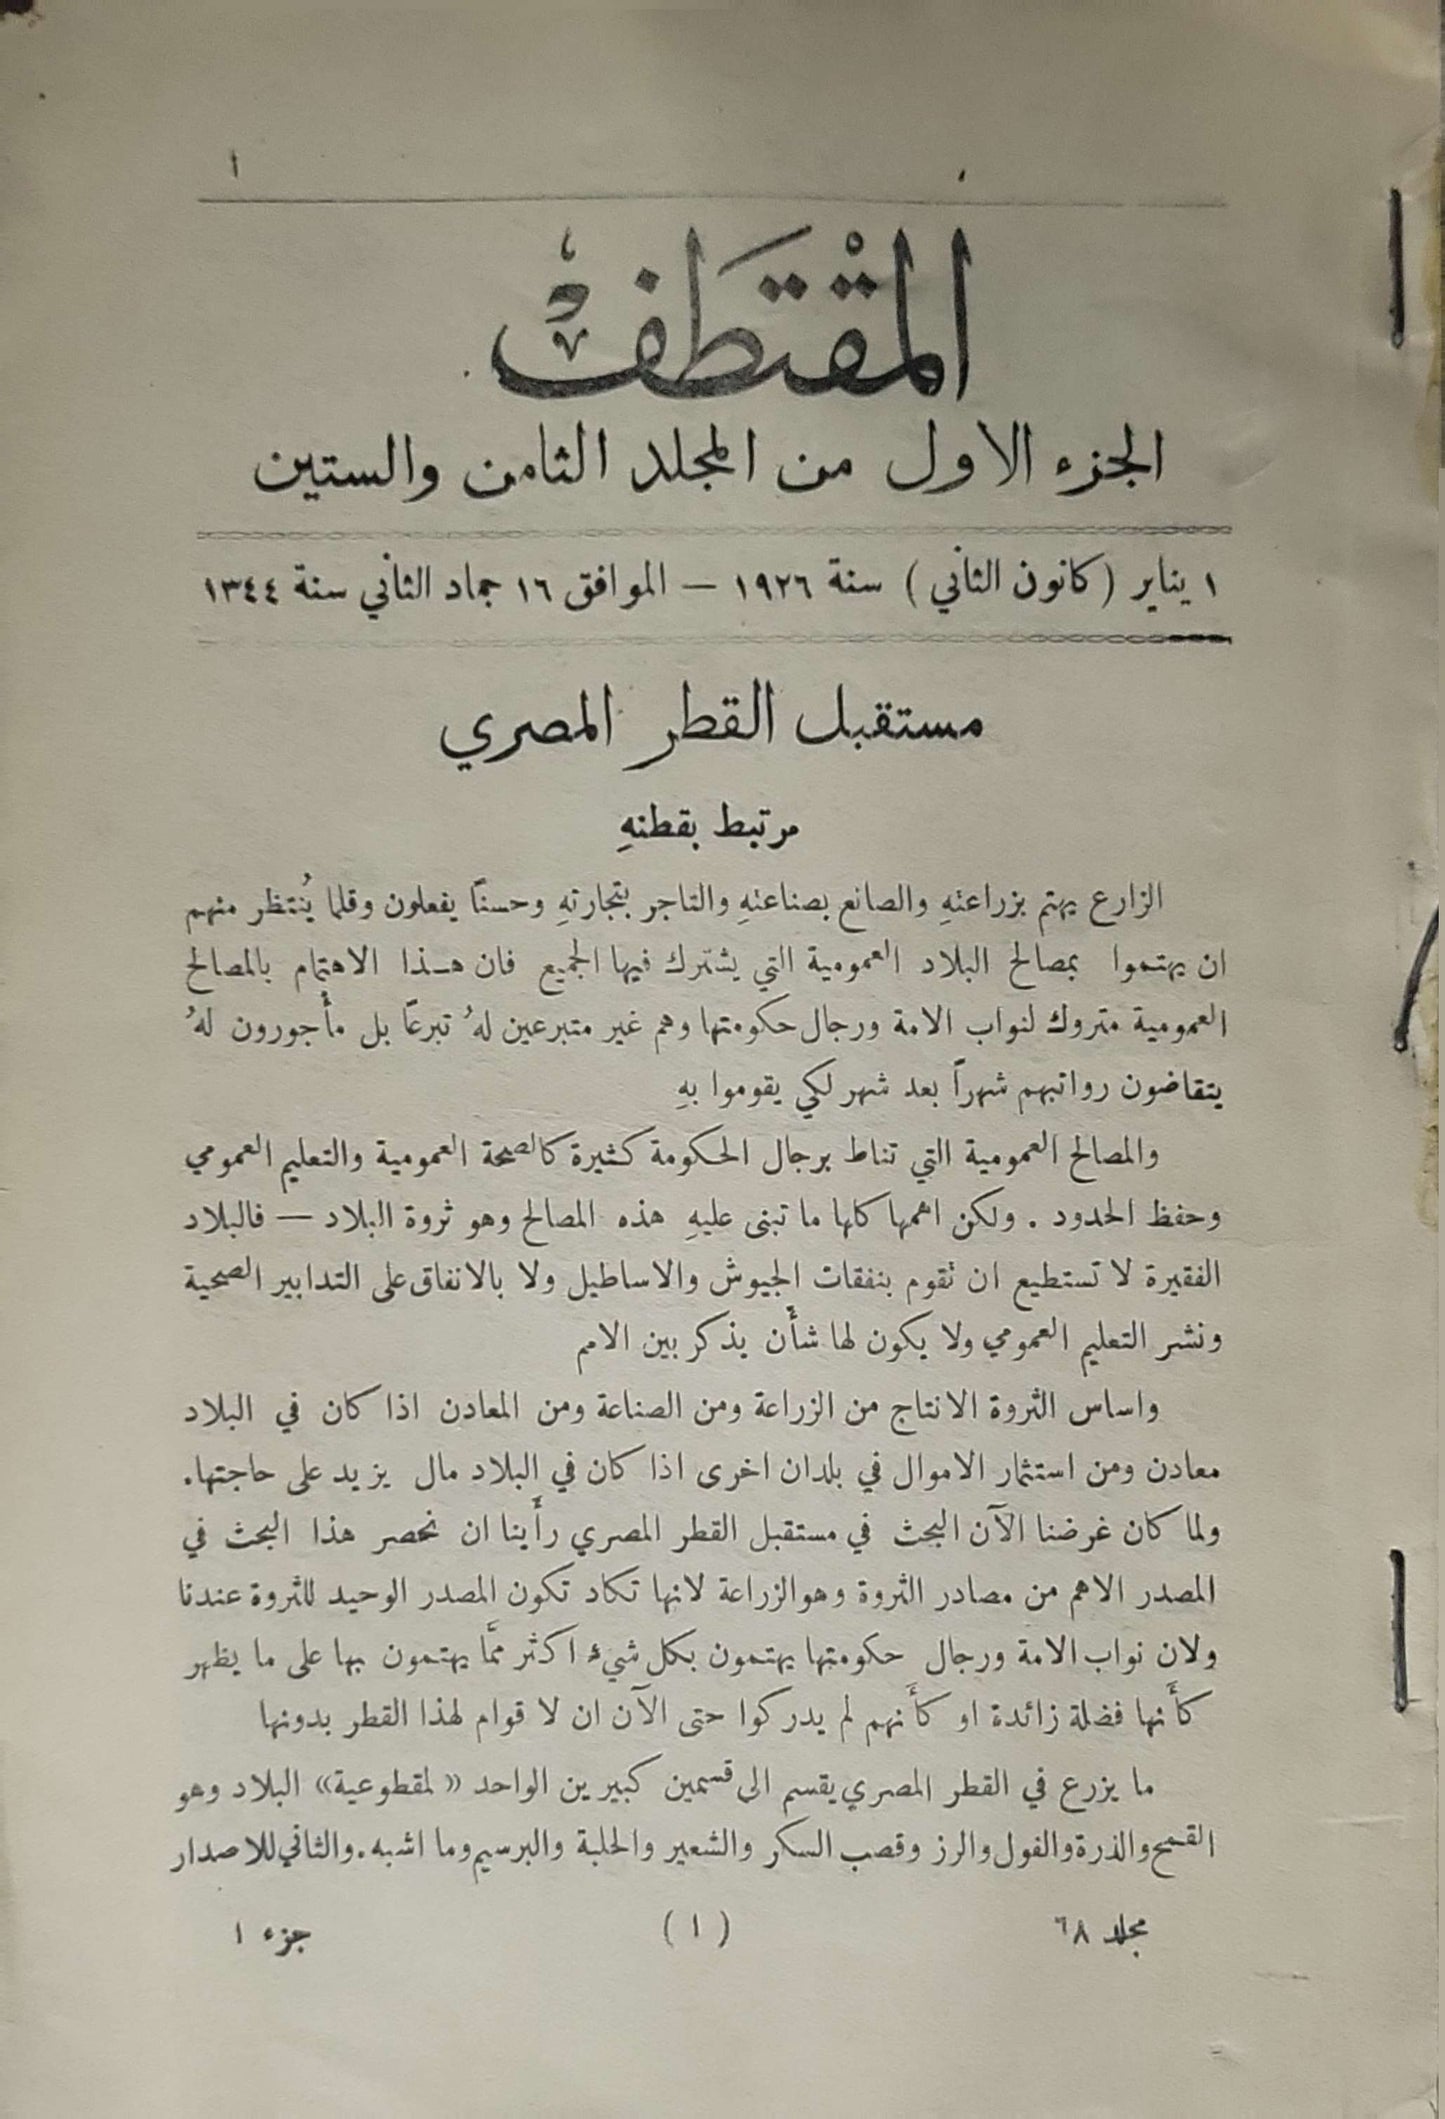 ١
المُقْتَطَفُ
الجزء الاول من المجلد الثامن والستين
١ يناير (كانون الثاني) سنة ١٩٢٦ — الموافق ١٦ جماد الثاني سنة ١٣٤٤
مستقبل القطر المصري
مرتبط بقطنهِ
الزارع يهتم بزراعتهِ والصانع بصناعتهِ والتاجر بتجارتهِ وحسناً يفعلون وقلما يُنتظر منهم
ان يهتموا بمصالح البلاد العمومية التي يشترك فيها الجميع فان هذا الاهتمام بالمصالح
العمومية متروك لنواب الامة ورجال حكومتها وهم غير متبرعين لهُ تبرعاً بل مأجورون لهُ
يتقاضون رواتبهم شهراً بعد شهر لكي يقوموا بهِ
والمصالح العمومية التي تناط برجال الحكومة كثيرة كالصحة العمومية والتعليم العمومي
وحفظ الحدود . ولكن اهمها كلها ما تبنى عليهِ هذه المصالح وهو ثروة البلاد — فالبلاد
الفقيرة لا تستطيع ان تقوم بنفقات الجيوش والاساطيل ولا بالانفاق على التدابير الصحية
ونشر التعليم العمومي ولا يكون لها شأن يذكر بين الامم
واساس الثروة الانتاج من الزراعة ومن الصناعة ومن المعادن اذا كان في البلاد
معادن ومن استثمار الاموال في بلدان اخرى اذا كان في البلاد مال يزيد على حاجتها.
ولما كان غرضنا الآن البحث في مستقبل القطر المصري رأينا ان نحصر هذا البحث في
المصدر الاهم من مصادر الثروة وهو الزراعة لانها تكاد تكون المصدر الوحيد للثروة عندنا
ولان نواب الامة ورجال حكومتها يهتمون بكل شيء اكثر ممَّا يهتمون بها على ما يظهر
كأنها فضلة زائدة او كأنهم لم يدركوا حتى الآن ان لا قوام لهذا القطر بدونها
ما يزرع في القطر المصري يقسم الى قسمين كبيرين الواحد «لمقطوعية» البلاد وهو
القمح والذرة والفول والرز وقصب السكر والشعير والحلبة والبرسيم وما اشبه. والثاني للاصدار
مجلد ٦٨ (١) جزء ١